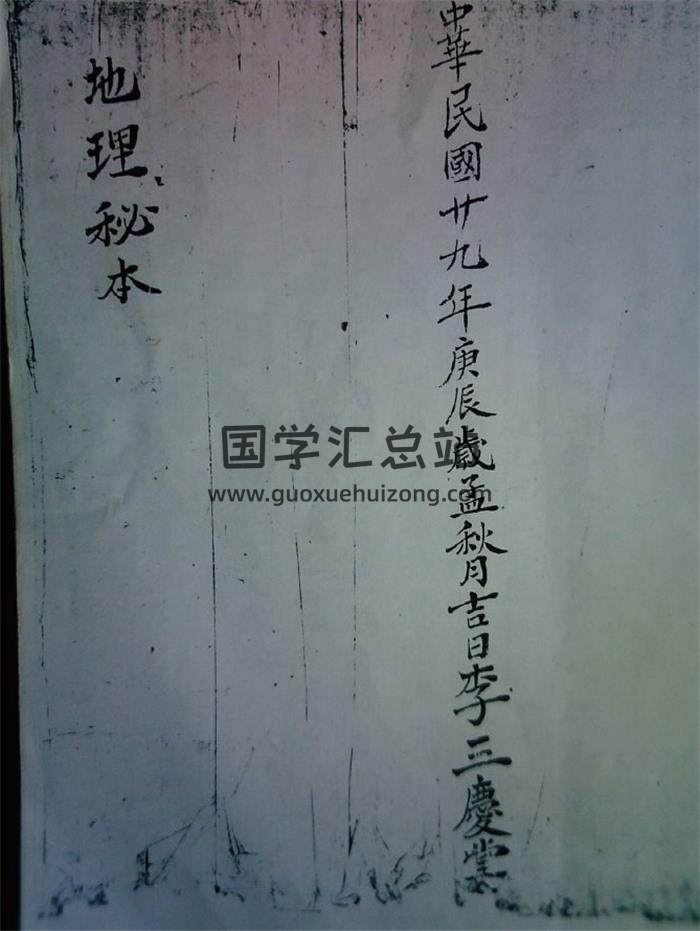 中華民國廿九年庚辰歲孟秋月吉日李三慶堂
地理秘本
国学汇总站
www.guoxuehuizong.com